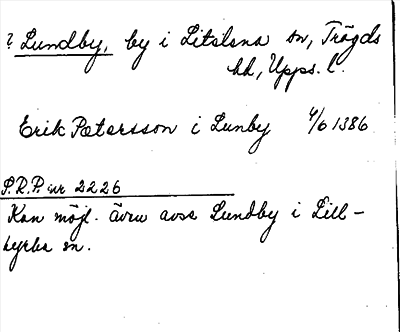 ? Lundby, by i Litslena sn, Trögds
hd, Upps. l.
Erik Petersson i Lunby 4/6 1386
S.R.P. nr 2226
Kan möjl. även avse Lundby i Lill-
kyrka sn.